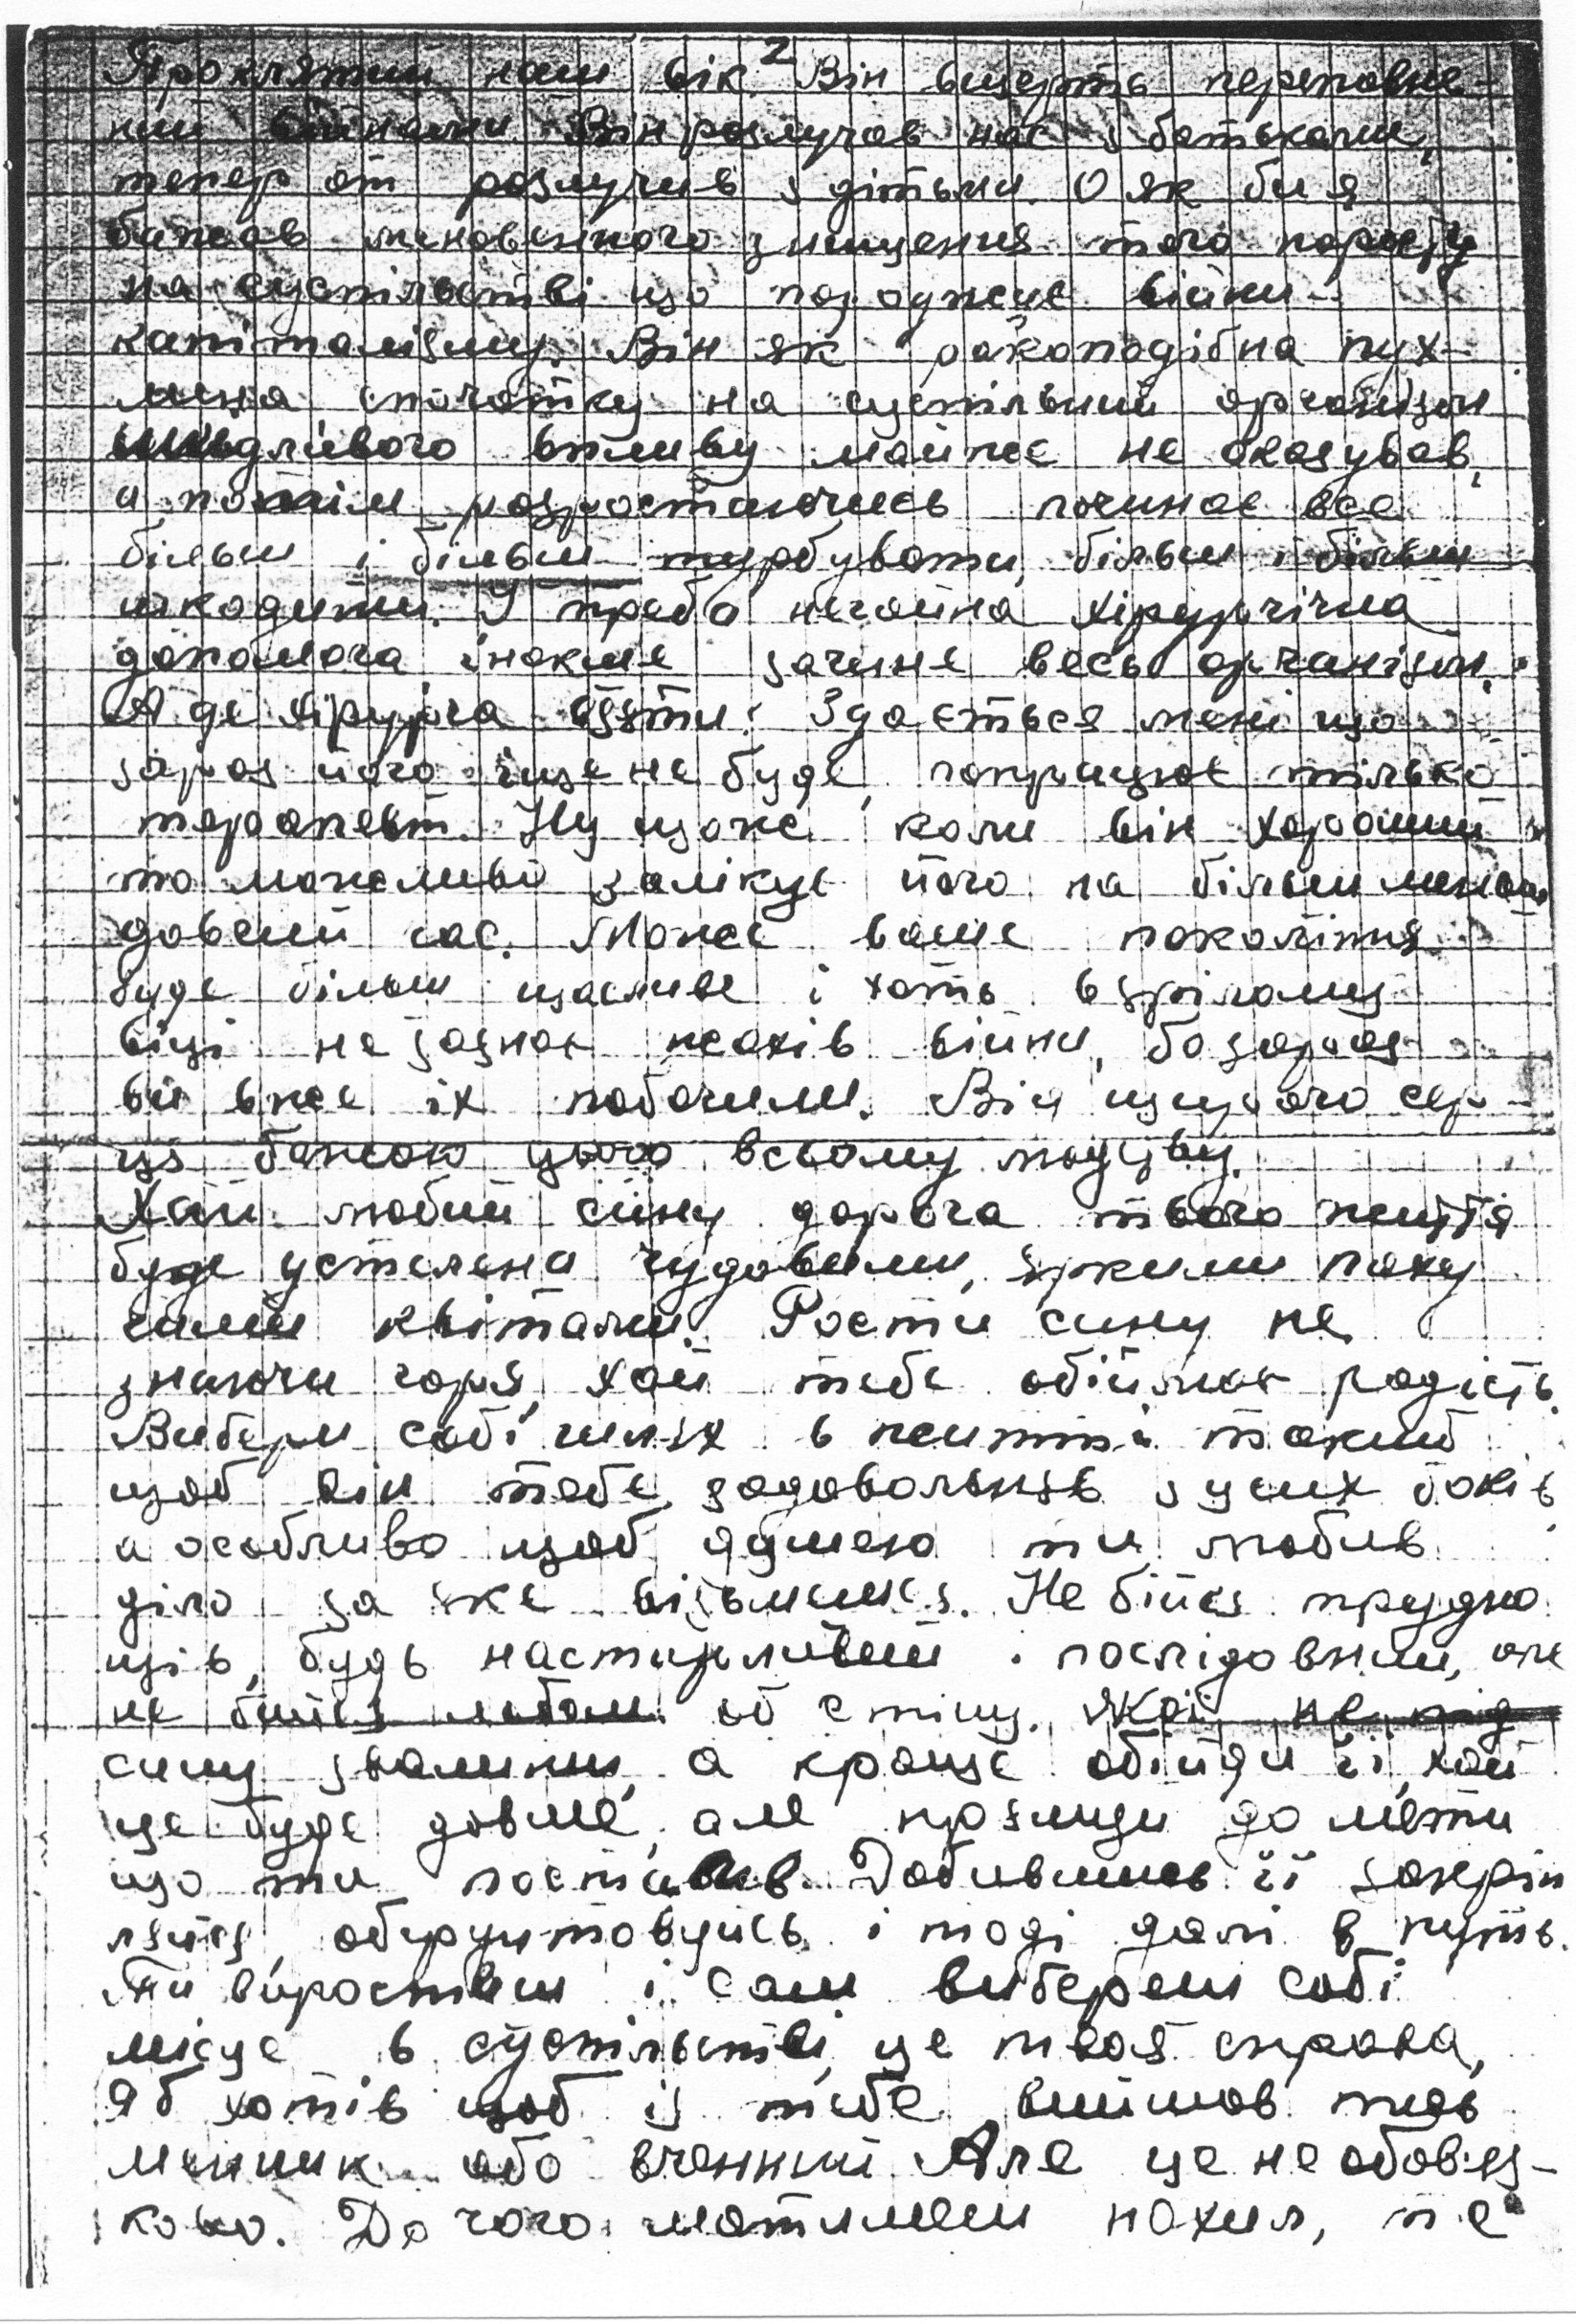 2
Проклятий наш вік. Він вщерть переповне-
ний війнами. Він розлучав нас з батьками,
тепер от розлучив з дітьми. О як би я
бажав мгновенного знищення того наросту
на суспільстві що породжує війни -
капіталізму. Він як ракоподібна пух-
лина спочатку на суспільний організм
шкідливого впливу майже не оказував,
а потім розростаючись починає все
більш і більш турбувати, більш і більш
шкодити. І треба негайна хірургічна
допомога інакше загине весь організм.
А де хірурга взяти? Здається мені що
зараз його іще не буде, попрацює тілько
терапевт. Ну що же, коли він хороший
то можливо залікує його на більш менш
довгий час. Може ваше покоління
буде більш щасливе і хоть в зрілому
віці не зазнає жахів війни, бо зараз
ви вже їх побачили. Від щирого сер-
ця бажаю цього всьому людству.
Хай любий сину дорога твого життя
буде устелена чудовими, яркими паху
чими квітами. Рости сину не
знаючи горя, хай тебе обіймає радість.
Вибери собі шлях в житті такий
щоб він тебе задовольняв з усих боків
а особливо щоб душею ти любив
діло за яке візьмешся. Не бійся трудно
щів, будь настирливий і послідовним, але
не бийся лобом об стіну. Якої не під
силу звалити, а краще обійди її, хай
це буде довше, але прямуй до мети
що ти поставив. Добившись її закріп
ляйся, обгрунтовуйсь і тоді далі в путь.
Ти виростеш і сам вибереш собі
місце в суспільстві, це твоя справа,
Я б хотів щоб із тебе вийшов пись
менник або вченний. Але це не обов'яз-
ково. До чого матимеш нахил, те